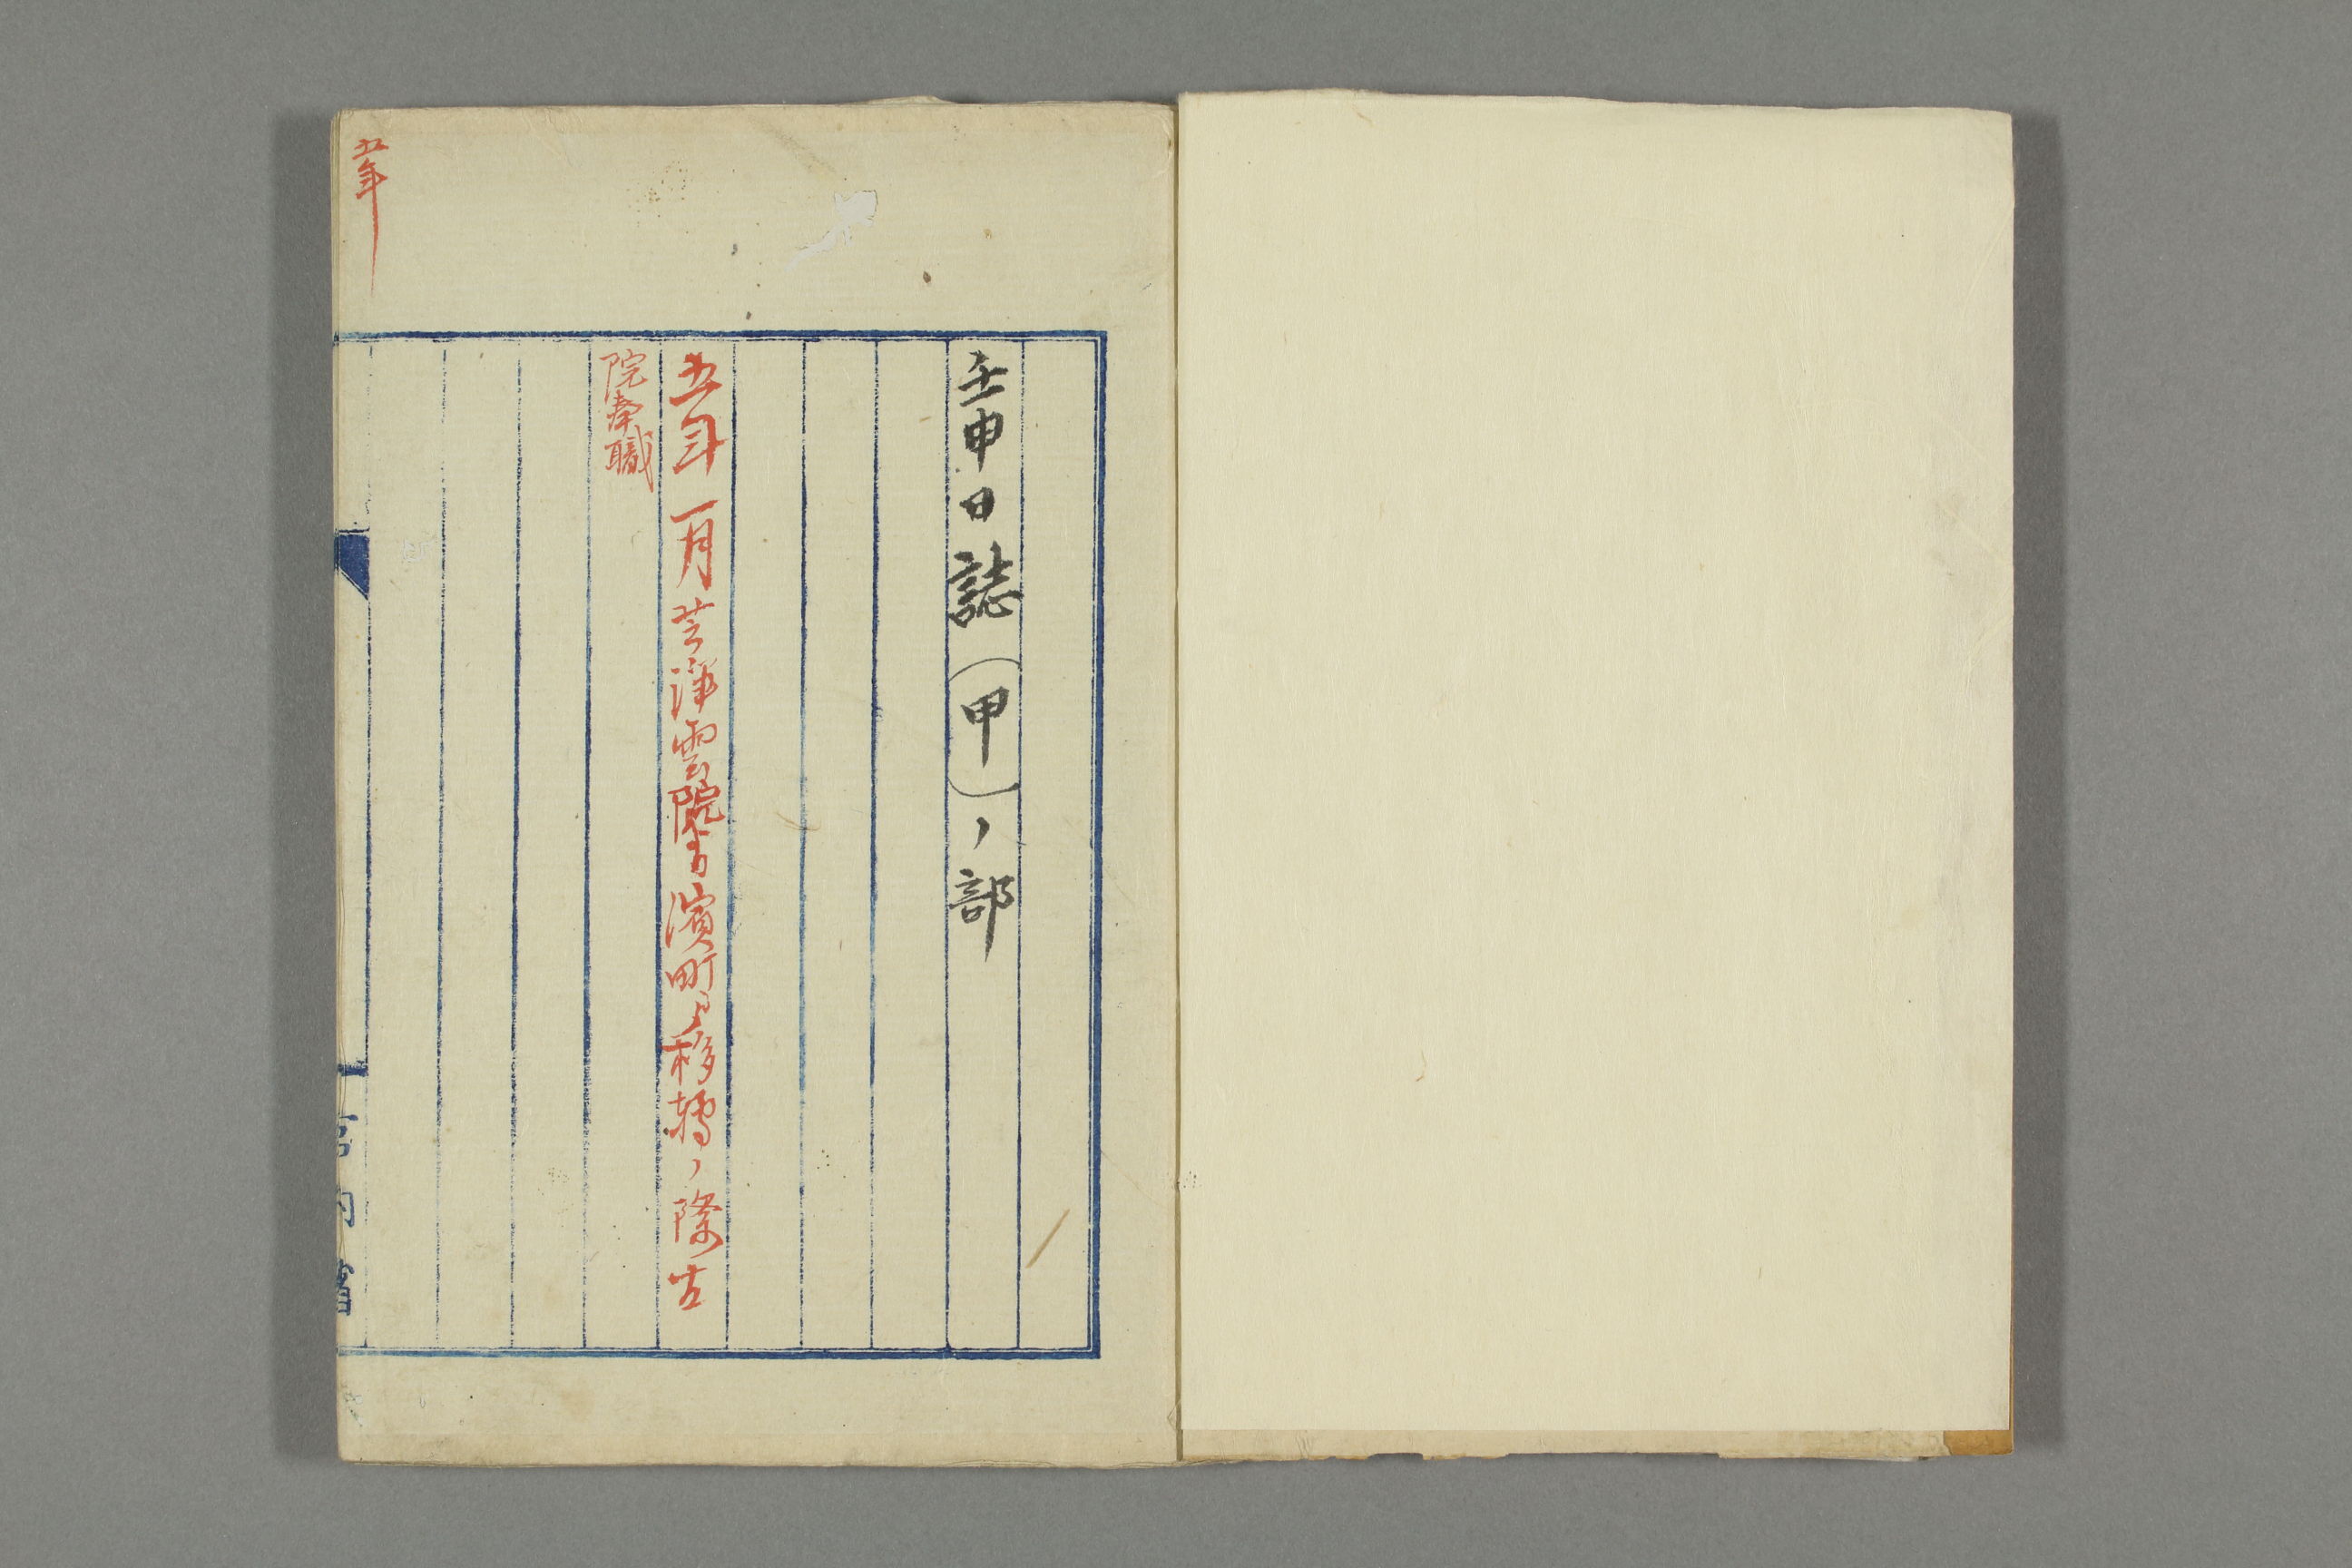 壬申日誌(甲)ノ部
五年一月芝浄雲院ヨリ濱町ヘ移轉ノ際左
院奉職
五年
宮内省